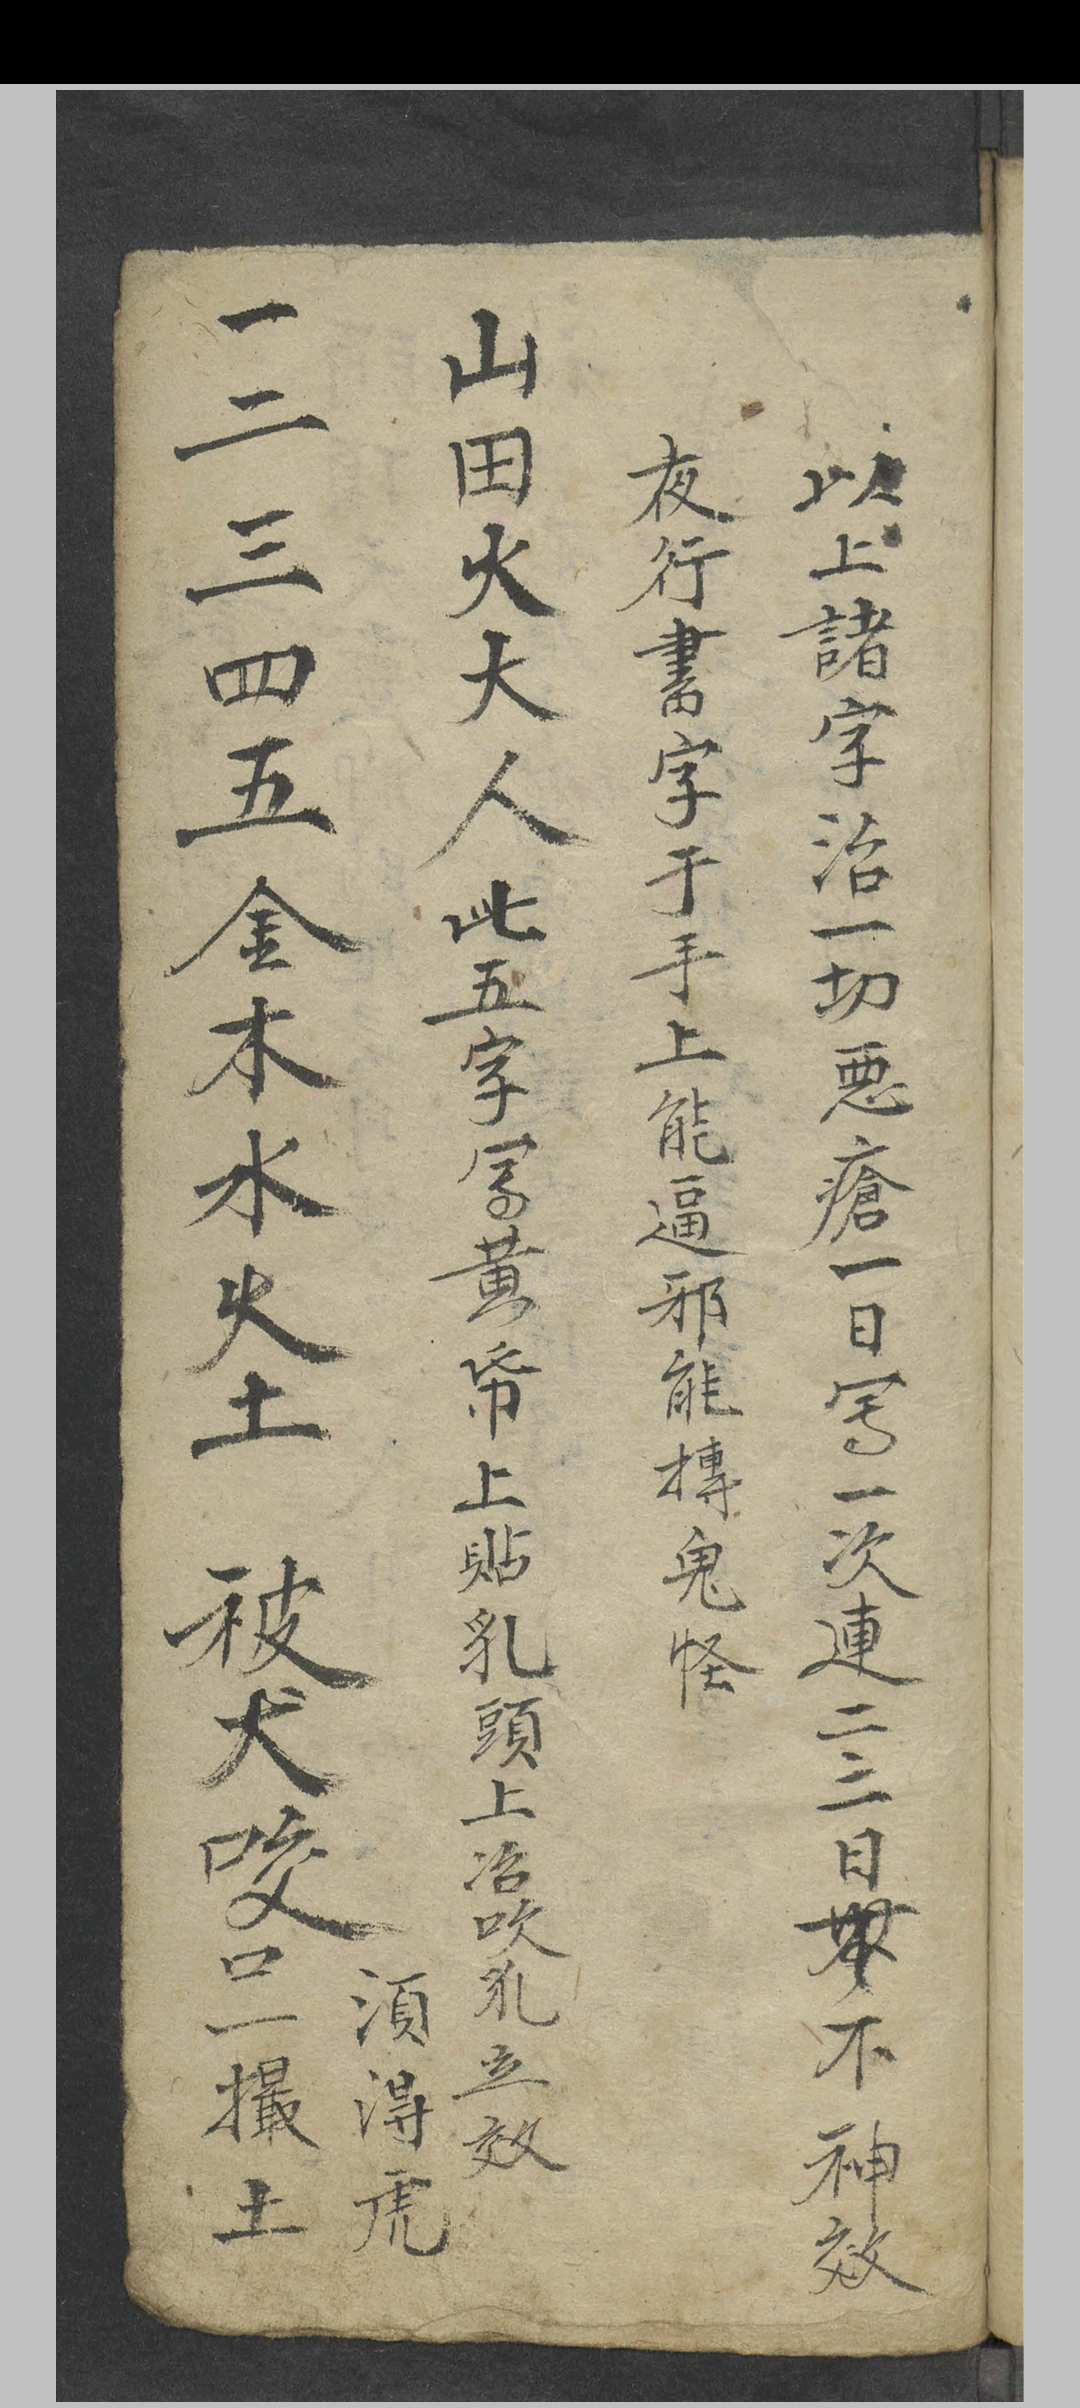 以上諸字治一切惡瘡一日写一次連二三日無不神效
夜行書字于手上能逼邪能摶鬼怪
山田火大人此五字写黃帋上貼乳頭上治吹乳立效
一二三四五金木水火土 被犬咬口一撮土
須得虎